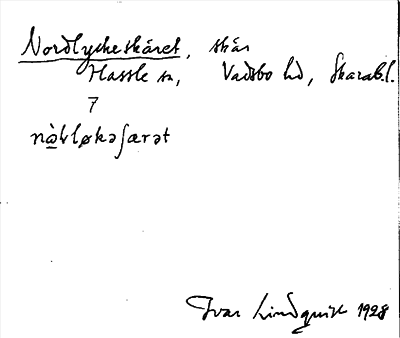 Nordlyckeskäret, skär
Hassle sn, Vadsbo hd, Skarab.l.
7
nàɫɫøkəʃærət
Ivar Lindquist 1928